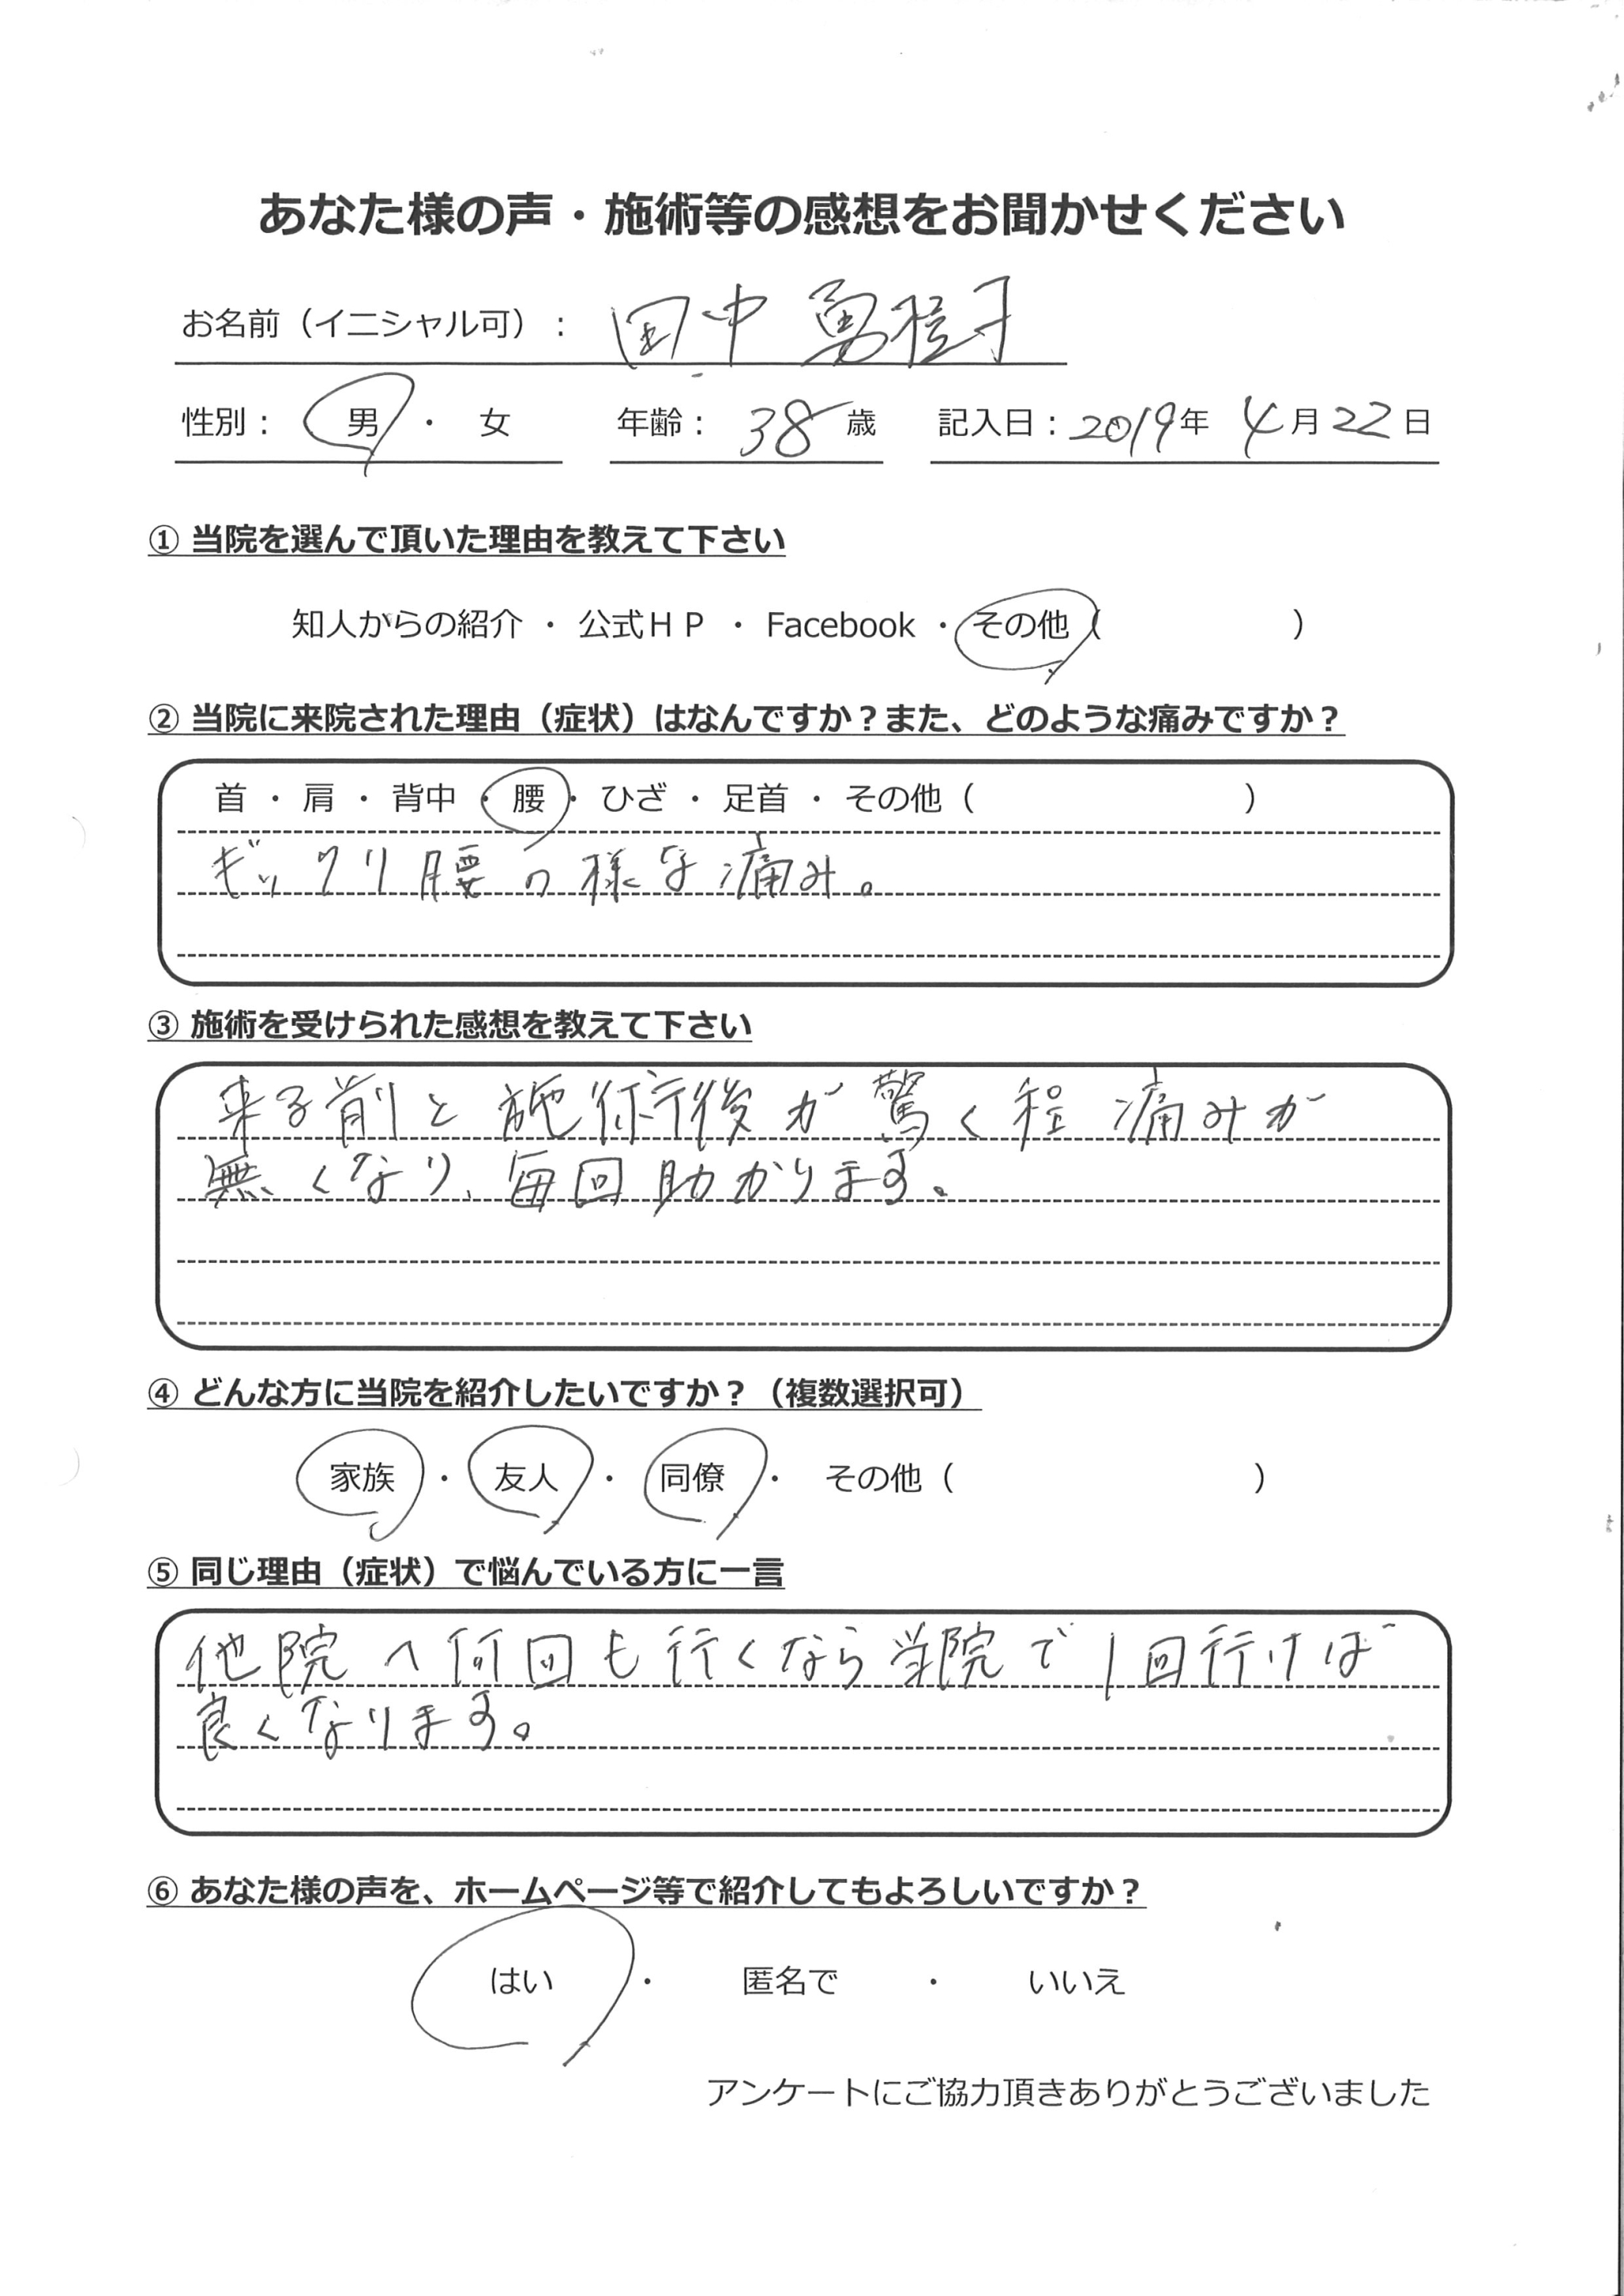 あなた様の声・施術等の感想をお聞かせください
お名前（イニシャル可）： 田中 勇樹
性別： 男 ・ 女 年齢： 38 歳 記入日：2019年 4月22日
① 当院を選んで頂いた理由を教えて下さい
知人からの紹介 ・ 公式ＨＰ ・ Facebook ・ その他（ ）
② 当院に来院された理由（症状）はなんですか？また、どのような痛みですか？
首 ・ 肩 ・ 背中 ・ 腰 ・ ひざ ・ 足首 ・ その他（ ）
ギックリ腰の様な痛み。
③ 施術を受けられた感想を教えて下さい
来る前と施術後が驚く程痛みが
無くなり、毎回助かります。
④ どんな方に当院を紹介したいですか？（複数選択可）
家族 ・ 友人 ・ 同僚 ・ その他（ ）
⑤ 同じ理由（症状）で悩んでいる方に一言
他院へ何回も行くなら当院で1回行けば
良くなります。
⑥ あなた様の声を、ホームページ等で紹介してもよろしいですか？
はい ・ 匿名で ・ いいえ
アンケートにご協力頂きありがとうございました